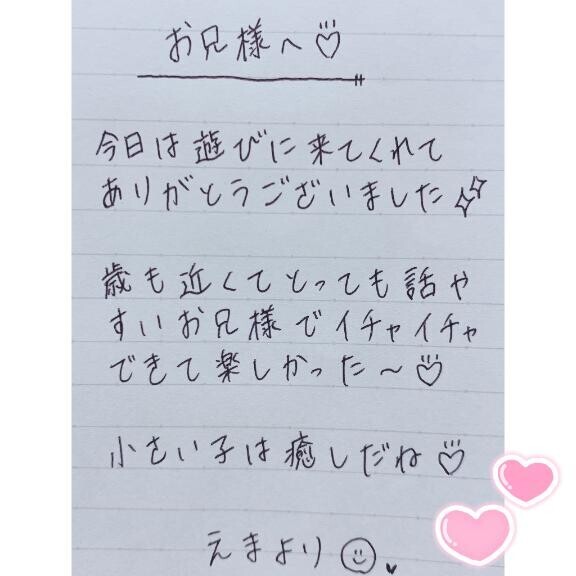 お兄様へ♡
今日は遊びに来てくれて
ありがとうございました✨
歳も近くてとっても話や
すいお兄様でイチャイチャ
できて楽しかった〜♡
小さい子は癒しだね♡
えまより☺♥